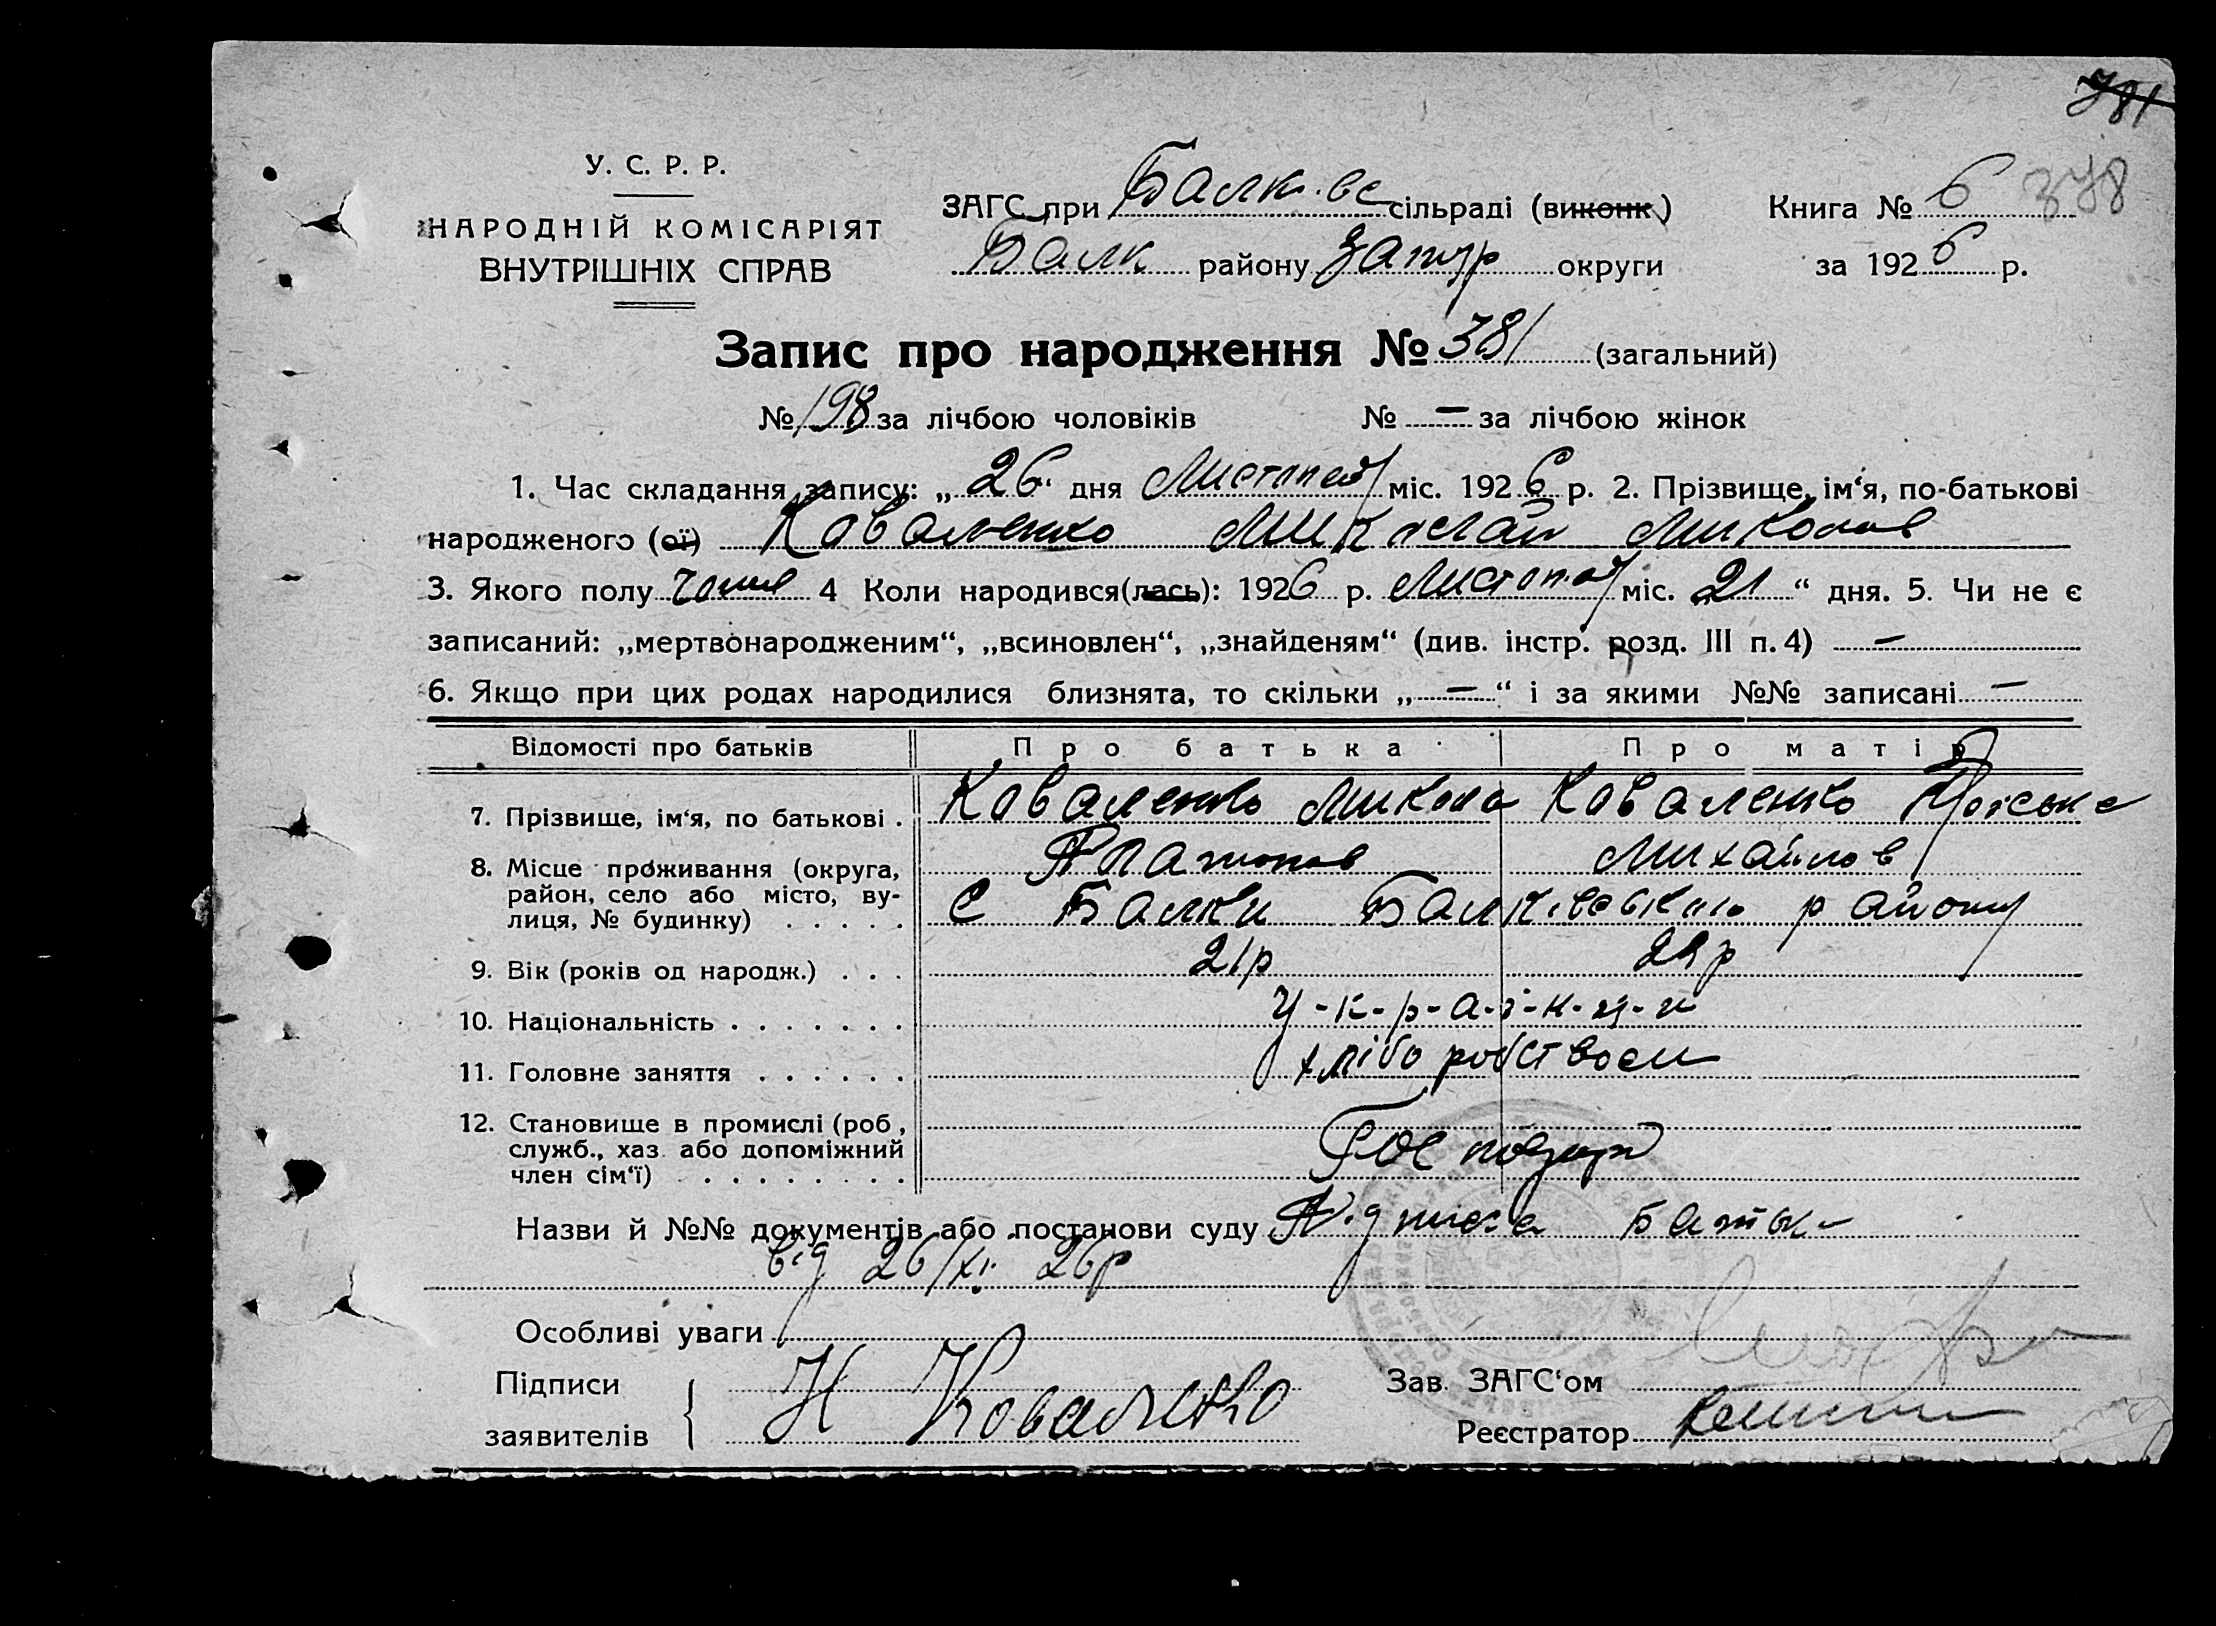 381
У. С. Р. Р.
НАРОДНІЙ КОМІСАРІЯТ
ВНУТРІШНІХ СПРАВ
ЗАГС при Балк. вс сільраді (виконк.)
Балк району Запор округи
Книга № 6 378
за 1926 р.
Запис про народження № 381 (загальний)
№ 198 за лічбою чоловіків № — за лічбою жінок
1. Час складання запису: „ 26 дня Листопад міс. 1926 р. 2. Прізвище, ім‘я, по-батькові
народженого (ої) Коваленко Миколай Миколов
3. Якого полу чолов 4 Коли народився(лась): 1926 р. Листопад міс. „21“ дня. 5. Чи не є
записаний: „мертвонародженим“, „всиновлен“, „знайденям“ (див. інстр. розд. III п. 4) —
6. Якщо при цих родах народилися близнята, то скільки „—“ і за якими №№ записані —
Відомості про батьків Про батька Про матір
7. Прізвище, ім‘я, по батькові . Коваленко Микола Коваленко
Платонов Михайлов
8. Місце проживання (округа,
район, село або місто, ву-
лиця, № будинку) . . . . . с Балки Балківського району
9. Вік (років од народж.) . . . 21р р
10. Національність . . . . . . . У-к-р-а-ї-н-ц-и
11. Головне заняття . . . . . . хліборобством
12. Становище в промислі (роб,
служб., хаз. або допоміжний
член сім‘ї) . . . . . . . . Господар
Назви й №№ документів або постанови суду Підписка Батьки
від 26/XI 26р
Особливі уваги
Підписи
заявителів
Н Коваленко
Зав. ЗАГС‘ом
Реєстратор